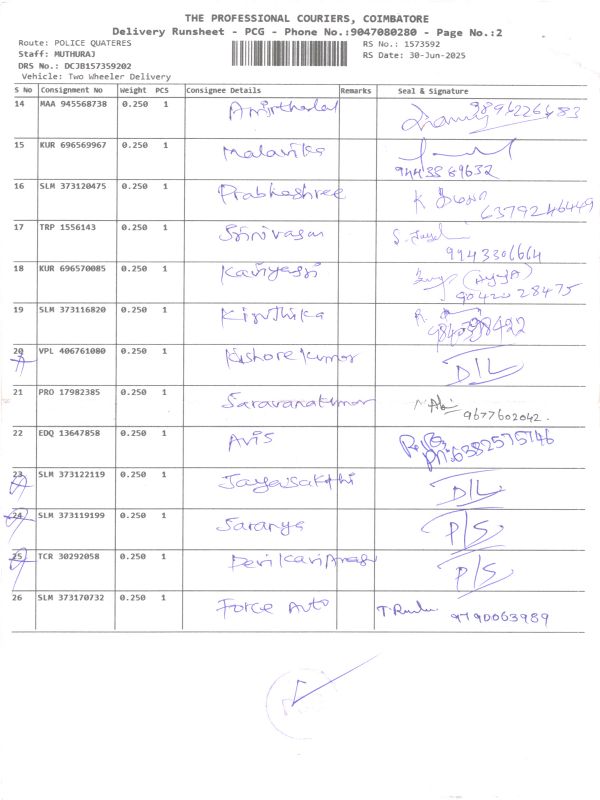 THE PROFESSIONAL COURIERS, COIMBATORE
Delivery Runsheet - PCG - Phone No.:9047080280 - Page No.:2
Route: POLICE QUATERES
RS No.: 1573592
Staff: MUTHURAJ
RS Date: 30-Jun-2025
DRS No.: DCJB157359202
Vehicle: Two Wheeler Delivery
S No Consignment No Weight PCS Consignee Details Remarks Seal & Signature
14 MAA 945568738 0.250 1
15 KUR 696569967 0.250 1 Malavika
9443869632
16 SLM 373120475 0.250 1 Prabhashree K
6379246449
17 TRP 1556143 0.250 1 Srinivasan S.
9943306664
18 KUR 696570085 0.250 1 Kaviyassi
90420 28475
19 SLM 373116820 0.250 1 Kiruthika R.
20 VPL 406761080 0.250 1 Kishore Kumar D/L
21 PRO 17982385 0.250 1 Saravanakumar
9677602042.
22 EDQ 13647858 0.250 1 Avis
Ph:6382575746
23 SLM 373122119 0.250 1 Jayasakthi D/L
24 SLM 373119199 0.250 1 Saranya P/S
25 TCR 30292058 0.250 1 P/S
26 SLM 373170732 0.250 1 Force Auto 9790063989